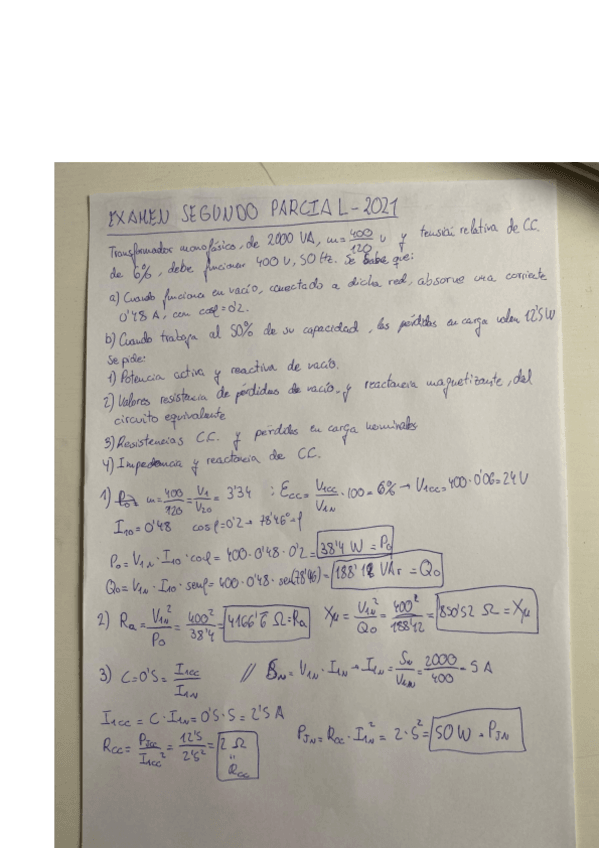 EXAMEN SEGUNDO PARCIAL - 2021
Transformador monofásico, de 2000 VA, m = 400/120 v y tensión relativa de CC.
de 6%, debe funcionar 400 v, 50 Hz. Se sabe que:
a) Cuando funciona en vacío, conectado a dicha red, absorve una corriente
0'48 A, con cosφ = 0'2.
b) Cuando trabaja al 50% de su capacidad, las pérdidas en carga valen 12'5 W
Se pide:
1) Potencia activa y reactiva de vacío.
2) Valores resistencia de pérdidas de vacío y reactancia magnetizante, del
circuito equivalente
3) Resistencias CC. y pérdidas en carga nominales
4) Impedancia y reactancia de CC.
1) m = 400/120 = V1/V20 = 3'34 ; Ecc = V1cc/V1N · 100 = 6% → V1cc = 400 · 0'06 = 24 V
I10 = 0'48 cosφ = 0'2 → 78'46° = φ
P0 = V1N · I10 · cosφ = 400 · 0'48 · 0'2 = 38'4 W = P0
Q0 = V1N · I10 · senφ = 400 · 0'48 · sen(78'46) = 188'12 VAr = Q0
2) Ra = V1N²/P0 = 400²/38'4 = 4166'6 Ω = Ra Xμ = V1N²/Q0 = 400²/188'12 = 850'52 Ω = Xμ
3) C = 0'5 = I1cc/I1N // SN = V1N · I1N → I1N = SN/V1N = 2000/400 = 5 A
I1cc = C · I1N = 0'5 · 5 = 2'5 A
Rcc = Pjcc/I1cc² = 12'5/2'5² = 2 Ω = Rcc PJN = Rcc · I1N² = 2 · 5² = 50 W = PJN